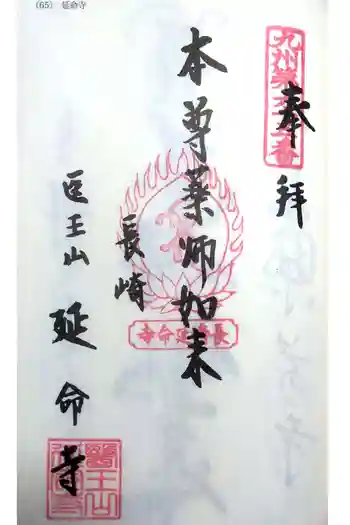 (65) 延命寺
奉拝
本尊薬師如来
長崎
医王山
延命寺
長崎延命寺
醫王山